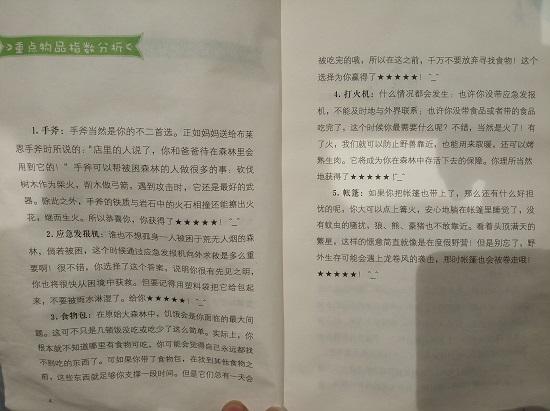 重点物品指数分析
1.手斧：手斧当然是你的不二首选。正如妈妈送给布莱
恩手斧时所说的："店里的人说了，你和爸爸待在森林里会
用到它的！"手斧可以帮被困森林的人做很多的事：砍伐
树木作为柴火，削木做弓箭，遇到攻击时，它还是最好的武
器。除此之外，手斧的铁质与岩石中的火石相撞还能擦出火
花，继而生火。所以恭喜你，你获得了★★★★★！^_^
2.应急发报机：谁也不想孤身一人被困于荒无人烟的森
林，倘若被困，这个时候通过应急发报机向外求救是多么重
要啊！很不错，你选择了这个答案，说明你很有先见之明，
你也将很快从困境中获救。但要记得用塑料袋把它给包起
来，不要被雨水淋湿了。给你★★★★★！^_^
3.食物包：在原始大森林中，饥饿会是你面临的最大问
题。这可不只是几顿饭没吃或吃少了这么简单。实际上，你
根本就不知道哪里有食物可吃。你可能会觉得自己永远都找
不到吃的东西了。可如果你带了食物包，在找到其他食物之
前，这些东西就足够你支撑一段时间。但是它们总有一天会
4
被吃完的哦，所以在这之前，千万不要放弃寻找食物！这个
选择为你赢得了★★★★★！^_^
4.打火机：什么情况都会发生：也许你没带应急发报
机，不能及时地与外界联系；也许你没带食品或者带的食品
吃完了。这个时候你最需要什么呢？不错，当然是火了！有
了火，我们就可以防止野兽靠近，也能用来取暖，还可以烤
熟生肉。它将成为你在森林中存活下去的保障。你理所当然
地获得了★★★★★！^_^
5.帐篷：如果你把帐篷也带上了，那么还有什么好担
忧的呢，你大可以点上篝火，安心地躺在帐篷里睡觉了，没
有蚊虫的骚扰，狼、熊、豪猪也不敢靠近。看着头顶满天的
繁星，这样的惬意简直就像是在度假野营！但是别忘了，野
外生存可能会遇上龙卷风的袭击，那时帐篷也会被卷走哦！
★★★★★！^_^